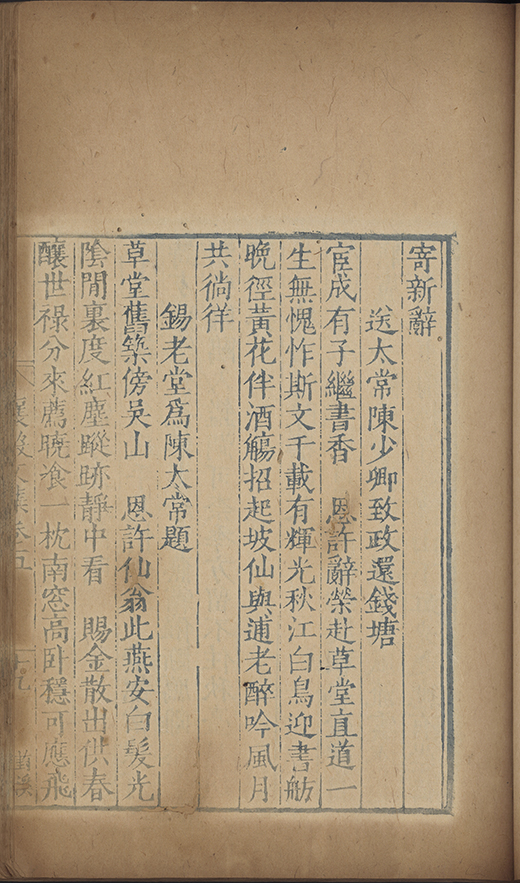 寄新辭
送太常陳少卿致政還錢塘
宦成有子繼書香　恩許辭榮赴草堂直道一
生無愧怍斯文千載有輝光秋江白鳥迎書舫
晚徑黃花伴酒觴招起坡仙與逋老醉吟風月
共徜徉
錫老堂爲陳太常題
草堂舊築傍吳山　恩許仙翁此燕安白髮光
陰閒裏度紅塵蹤跡靜中看　賜金散出供春
釀世祿分來薦晚飡一枕南窓高卧穩可應飛
襄毅文集卷五　十九